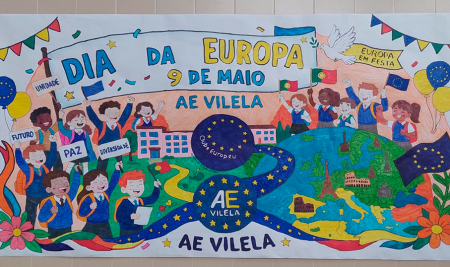 DIA DA EUROPA
9 DE MAIO
AE VILELA
EUROPA
EM FESTA
UNIDADE
FUTURO
PAZ
DIVERSIDADE
Clube Europeu
AE
VILELA
AE VILELA